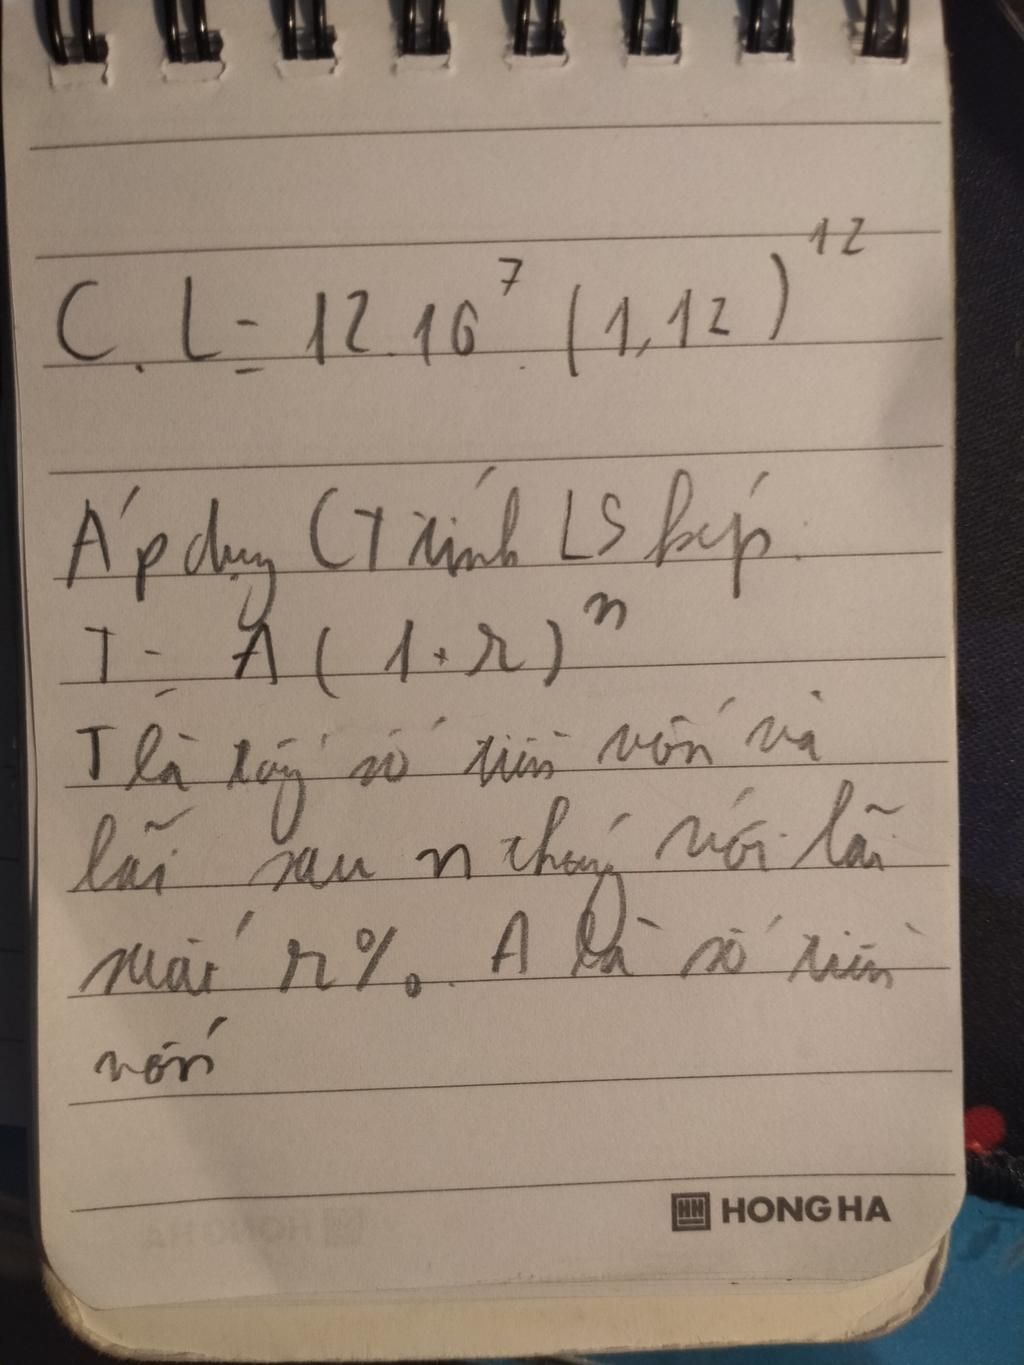 C. L = 12.10⁷.(1,12)¹²
Áp dụng CT tính LS kép:
T = A(1+r)ⁿ
T là tổng số tiền vốn và
lãi sau n tháng với lãi
suất r%. A là số tiền
vốn
HONG HA